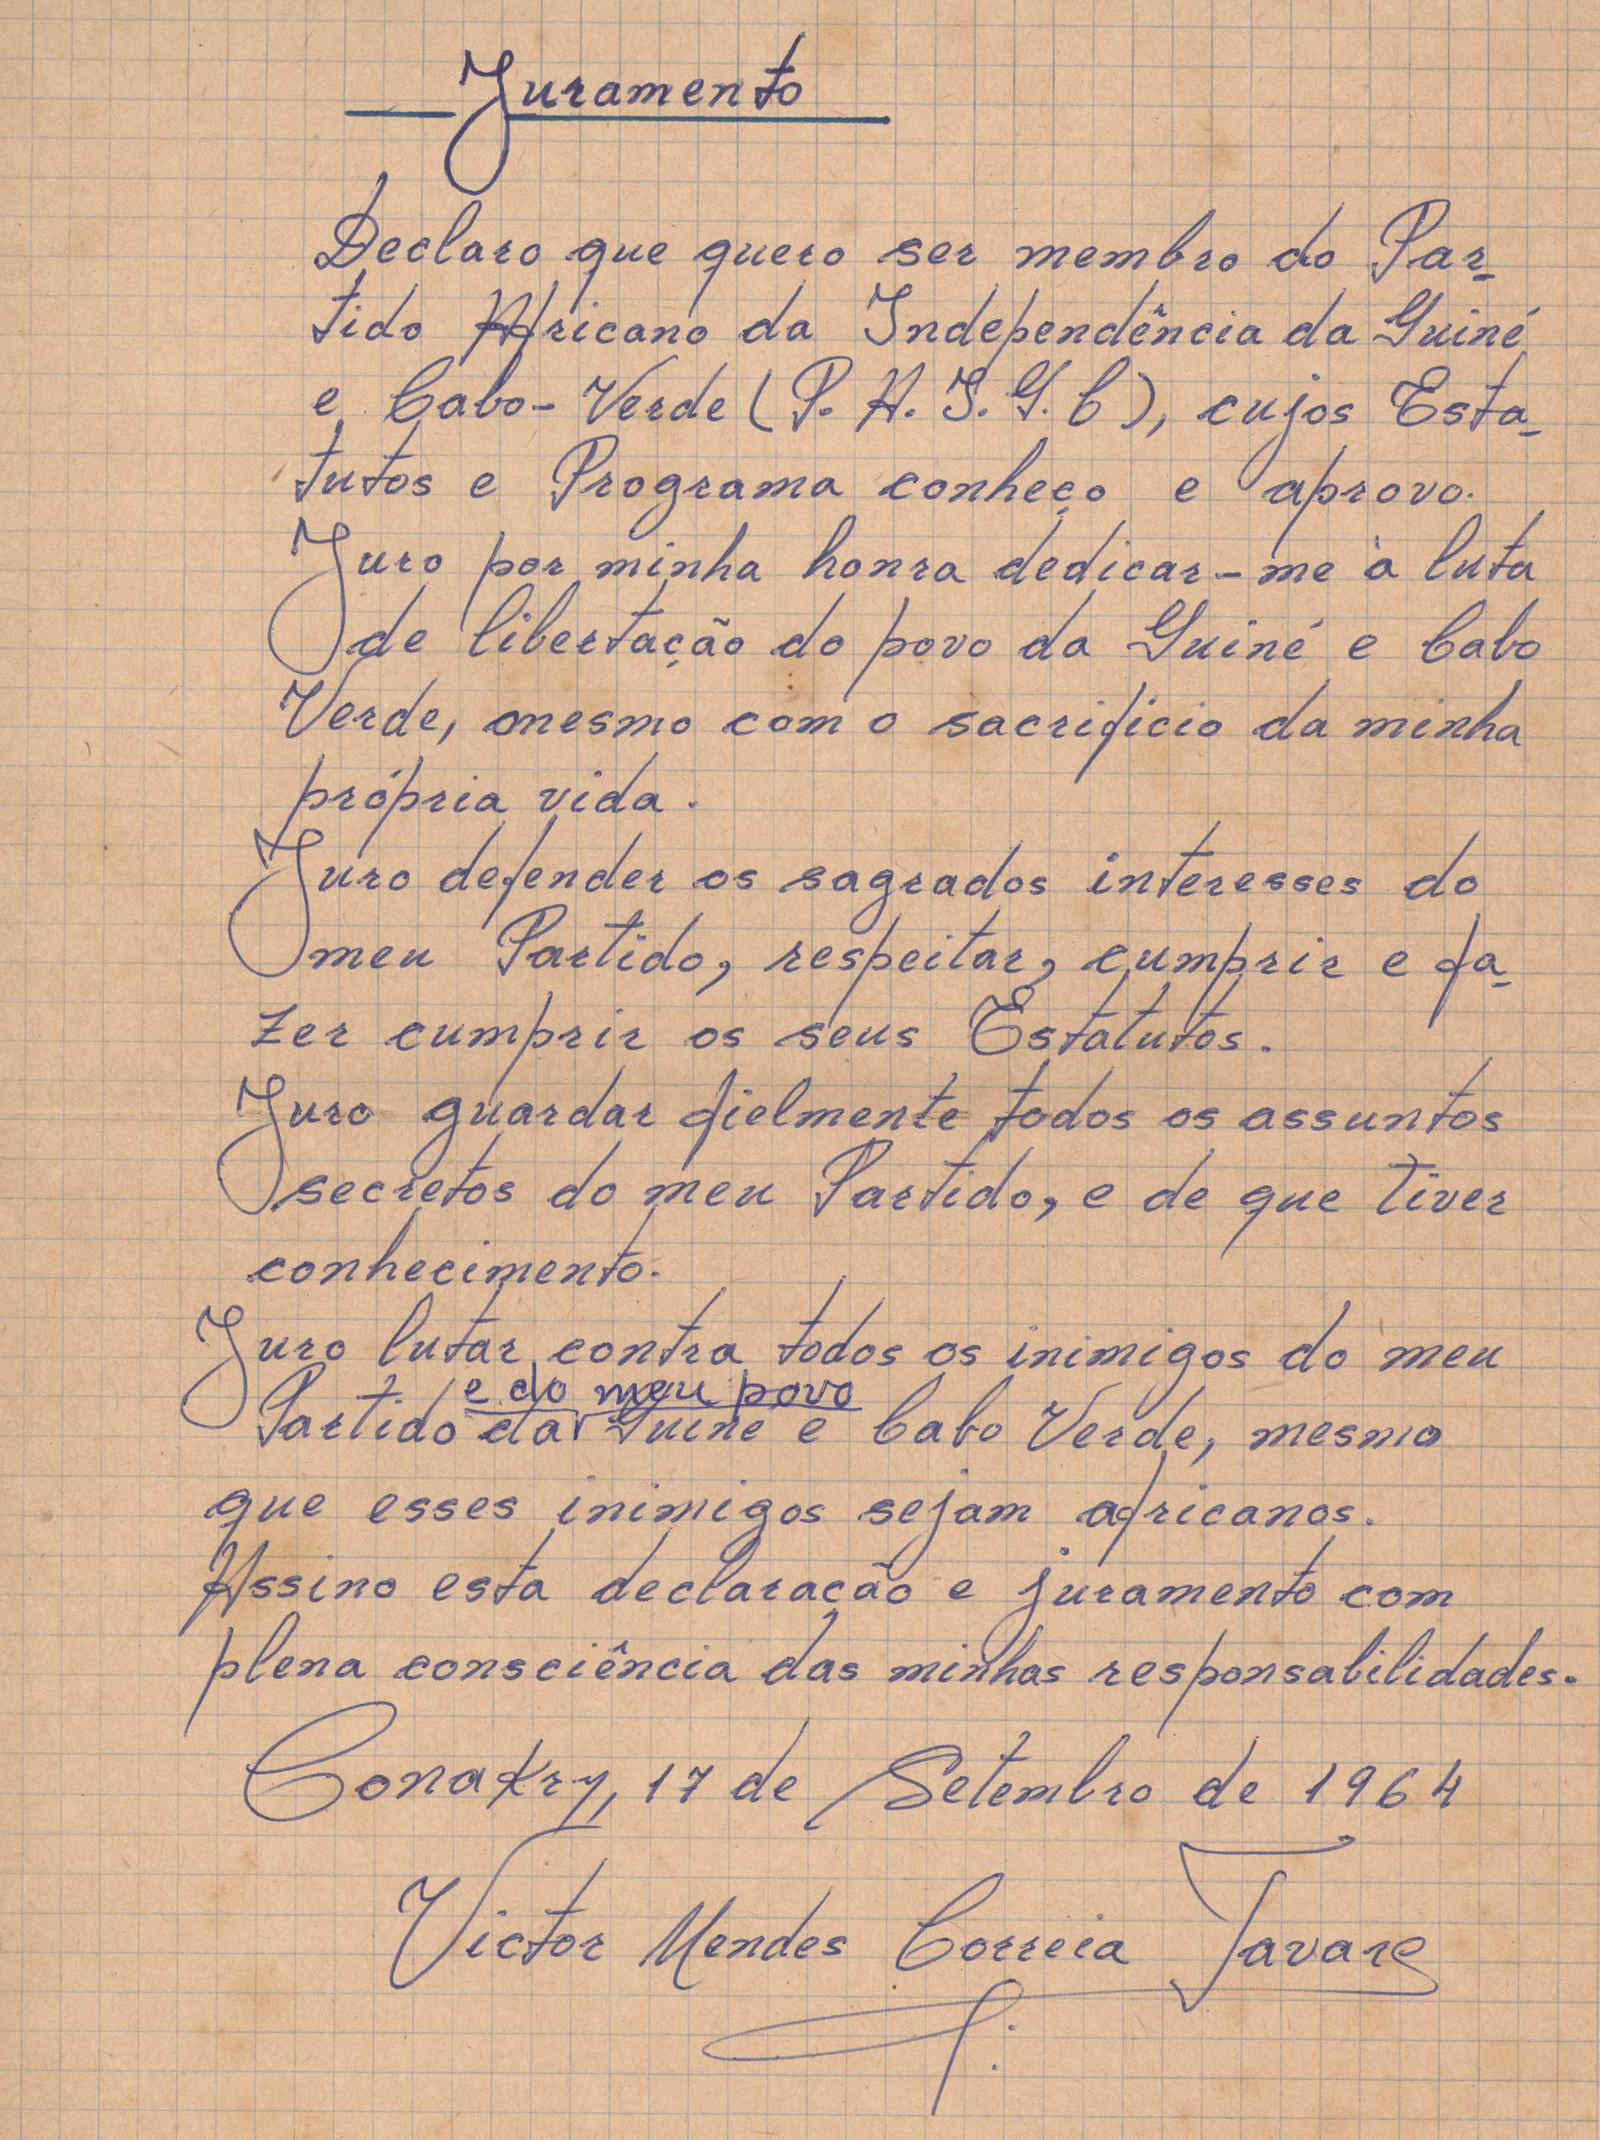 Juramento
Declaro que quero ser membro do Par-
tido Africano da Independência da Guiné
e Cabo-Verde (P. A. I. G. C), cujos Esta-
tutos e Programa conheço e aprovo.
Juro por minha honra dedicar-me à luta
de libertação do povo da Guiné e Cabo
Verde, mesmo com o sacrificio da minha
própria vida.
Juro defender os sagrados interesses do
meu Partido, respeitar, cumprir e fa-
zer cumprir os seus Estatutos.
Juro guardar fielmente todos os assuntos
secretos do meu Partido, e de que tiver
conhecimento.
Juro lutar contra todos os inimigos do meu
e do meu povo
Partido da Guiné e Cabo Verde, mesmo
que esses inimigos sejam africanos.
Assino esta declaração e juramento com
plena consciência das minhas responsabilidades.
Conakry, 17 de Setembro de 1964
Victor Mendes Correia Tavares